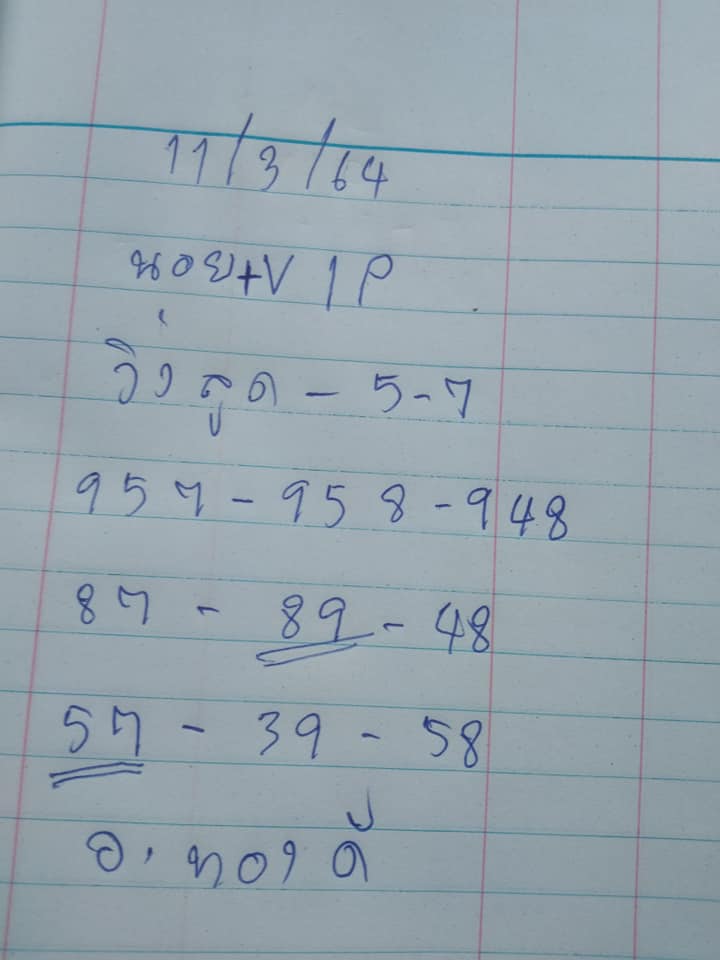 11/3/64
นอย+VIP
วิ่งรูด - 5-7
957 - 958 - 948
87 - 89 - 48
57 - 39 - 58
อ. ทองดี